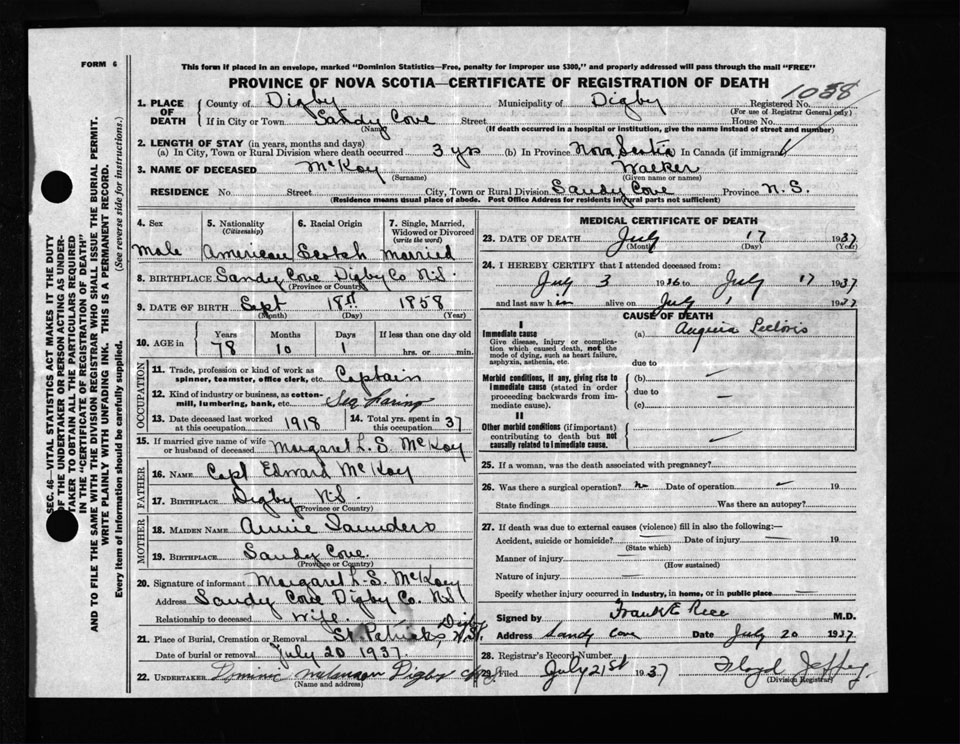 FORM 6
This form if placed in an envelope, marked "Dominion Statistics—Free, penalty for improper use $300," and properly addressed will pass through the mail "FREE"
PROVINCE OF NOVA SCOTIA—CERTIFICATE OF REGISTRATION OF DEATH
1. PLACE OF DEATH
County of Digby Municipality of Digby Registered No. 1038
(For use of Registrar General only)
If in City or Town Sandy Cove Street House No.
(Name) (If death occurred in a hospital or institution, give the name instead of street and number)
2. LENGTH OF STAY (in years, months and days)
(a) In City, Town or Rural Division where death occurred 3 yrs (b) In Province Nova Scotia In Canada (if immigrant)
3. NAME OF DECEASED McKay Walker
(Surname) (Given name or names)
RESIDENCE No. Street City, Town or Rural Division Sandy Cove Province N.S.
(Residence means usual place of abode. Post Office Address for residents in rural parts not sufficient)
4. Sex 5. Nationality (Citizenship) 6. Racial Origin 7. Single, Married, Widowed or Divorced (write the word)
Male American Scotch married
8. BIRTHPLACE Sandy Cove Digby Co N.S.
(Province or Country)
9. DATE OF BIRTH Sept 18 1858
(Month) (Day) (Year)
10. AGE in Years Months Days If less than one day old
78 10 1 hrs. or min.
OCCUPATION
11. Trade, profession or kind of work as spinner, teamster, office clerk, etc. Captain
12. Kind of industry or business, as cotton-mill, lumbering, bank, etc. Sea Faring
13. Date deceased last worked at this occupation 1918 14. Total yrs. spent in this occupation 37
15. If married give name of wife or husband of deceased Margaret L. S. McKay
FATHER
16. NAME Capt Edward McKay
17. BIRTHPLACE Digby N.S.
(Province or Country)
MOTHER
18. MAIDEN NAME Annie Saunders
19. BIRTHPLACE Sandy Cove.
(Province or Country)
20. Signature of informant Margaret L. S. McKay
Address Sandy Cove Digby Co. N.S.
Relationship to deceased Wife.
21. Place of Burial, Cremation or Removal St Patricks, Digby N.S.
Date of burial or removal July 20 1937.
22. UNDERTAKER Dominic Digby
(Name and address)
MEDICAL CERTIFICATE OF DEATH
23. DATE OF DEATH July 17 1937
(Month) (Day) (Year)
24. I HEREBY CERTIFY that I attended deceased from:
July 3 1936 to July 17 1937
and last saw him alive on July 1 1937
CAUSE OF DEATH
I
Immediate cause (a) Angina
Give disease, injury or complication which caused death, not the mode of dying, such as heart failure, asphyxia, asthenia, etc.
due to
Morbid conditions, if any, giving rise to immediate cause (stated in order proceeding backwards from immediate cause).
(b)
due to
(c)
II
Other morbid conditions (if important) contributing to death but not causally related to immediate cause.
25. If a woman, was the death associated with pregnancy?
26. Was there a surgical operation? no Date of operation 19
State findings Was there an autopsy?
27. If death was due to external causes (violence) fill in also the following:—
Accident, suicide or homicide? Date of injury 19
(State which)
Manner of injury
(How sustained)
Nature of injury
Specify whether injury occurred in industry, in home, or in public place
Signed by Frank E Rice M.D.
Address Sandy Cove Date July 20 1937
28. Registrar's Record Number
29. Filed July 21st 1937 Floyd Jeffrey
(Division Registrar)
SEC. 46—VITAL STATISTICS ACT MAKES IT THE DUTY OF THE UNDERTAKER OR PERSON ACTING AS UNDERTAKER TO OBTAIN ALL THE PARTICULARS REQUIRED IN THE "CERTIFICATE OF REGISTRATION OF DEATH"
AND TO FILE THE SAME WITH THE DIVISION REGISTRAR WHO SHALL ISSUE THE BURIAL PERMIT.
WRITE PLAINLY WITH UNFADING INK. THIS IS A PERMANENT RECORD.
Every item of information should be carefully supplied. (See reverse side for instructions.)